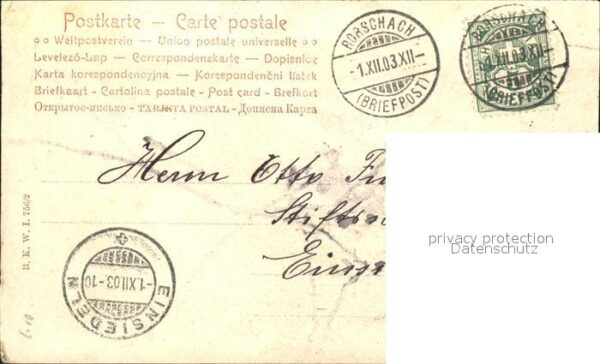 Postkarte – Carte postale
Weltpostverein – Union postale universelle
Levelező-Lap – Correspondenzkarte – Dopisnice
Karta korespondencyjna – Korespondenční lístek
Briefkaart – Cartolina postale – Post card – Brefkort
Открытое-письмо – TARJETA POSTAL – Дописна Карта
RORSCHACH
-1.XII.03.XII-
(BRIEFPOST)
RORSCHACH
1.XII.03.XII-
(BRIEFPOST)
Herrn Otto
Stifts
Eins
privacy protection
Datenschutz
B. K. W. I. 756/2
EINSIEDELN
-1.XII.03-10